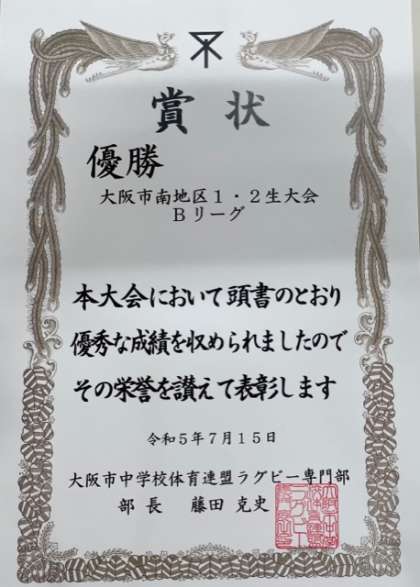 賞状
優勝
大阪市南地区1・2生大会
Bリーグ
本大会において頭書のとおり
優秀な成績を収められましたので
その栄誉を讃えて表彰します
令和5年7月15日
大阪市中学校体育連盟ラグビー専門部
部長 藤田 克史